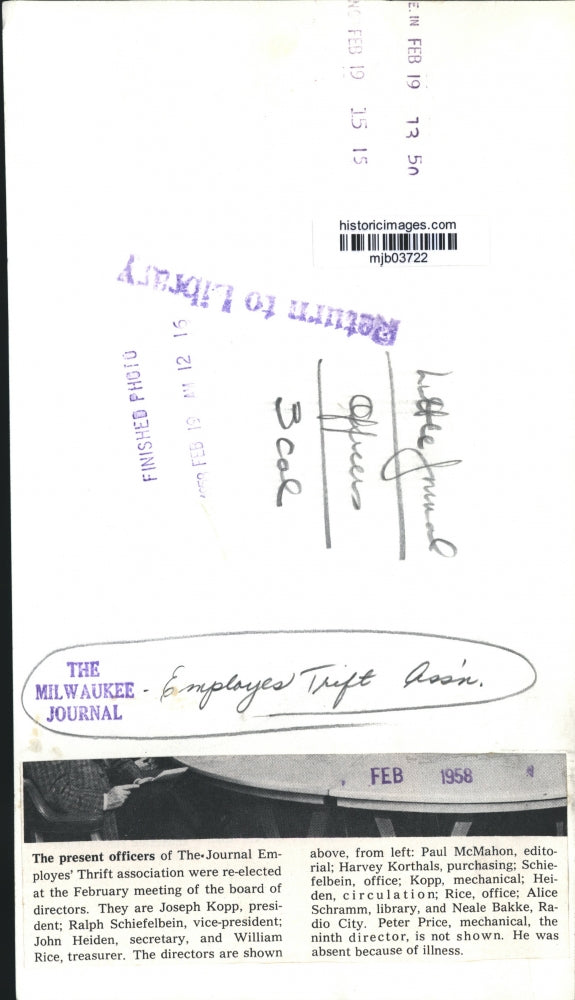 E. IN FEB 19 13 50
FEB 19 15 15
historicimages.com
mjb03722
Return to Library
FINISHED PHOTO
FEB 19 AM 12 15
Little Journal
Officers
3 col
THE
MILWAUKEE - Employes Trift Ass'n.
JOURNAL
FEB 1958
The present officers of The Journal Em-
ployes' Thrift association were re-elected
at the February meeting of the board of
directors. They are Joseph Kopp, presi-
dent; Ralph Schiefelbein, vice-president;
John Heiden, secretary, and William
Rice, treasurer. The directors are shown
above, from left: Paul McMahon, edito-
rial; Harvey Korthals, purchasing; Schie-
felbein, office; Kopp, mechanical; Hei-
den, circulation; Rice, office; Alice
Schramm, library, and Neale Bakke, Ra-
dio City. Peter Price, mechanical, the
ninth director, is not shown. He was
absent because of illness.